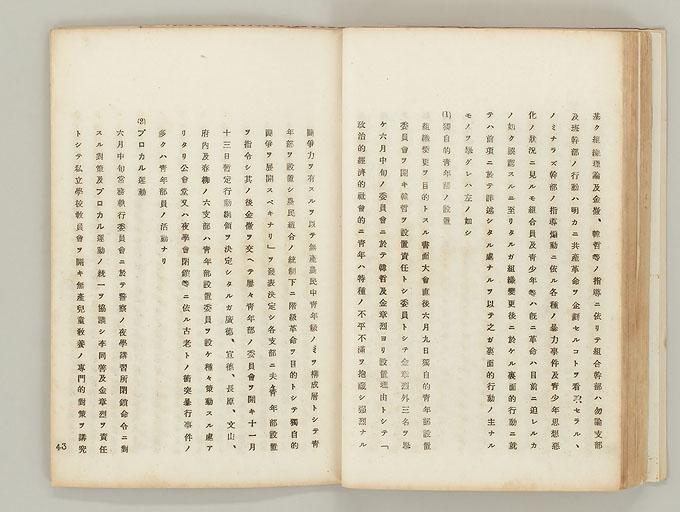 基ク組織理論及金徽、韓哲等ノ指導ニ依リテ組合幹部ハ勿論支部
及班幹部ノ行動ハ明カニ共産革命ヲ企劃セルコトヲ看取セラル、
ノミナラズ幹部ノ指導煽動ニ依ル各種ノ暴力事件及青少年思想惡
化ノ狀況ニ見ルモ組合員及青少年等ハ旣ニ革命ハ目前ニ迫レルカ
ノ如ク誤認スルニ至リタルガ組織變更後ニ於ケル裏面的行動ニ就
テハ前項ニ於テ詳述シタル處ナルヲ以テ之ガ裏面的行動ノ主ナル
モノヲ擧グレハ左ノ如シ
(1) 獨自的靑年部ノ設置
組織變更ヲ目的トスル書面大會直後六月九日獨自的靑年部設置
委員會ヲ開キ韓哲ヲ設置責任トシ委員トシテ金章烈外三名ヲ擧
ケ六月中旬ノ委員會ニ於テ韓哲及金章烈ヨリ設置理由トシテ「
政治的經濟的社會的ニ靑年ハ特種ノ不平不滿ヲ抱藏シ强烈ナル
鬪爭力ヲ有スルヲ以テ無產農民中靑年級ノミヲ構成層トシテ靑
年部ヲ設置シ農民組合ノ統制下ニ階級革命ヲ目的トシテ獨自的
鬪爭ヲ展開スベキナリ」ヲ發表決定シ各支部ニ夫々靑年部設置
ヲ指令シ其ノ後金徽ヲ交ヘテ屢々靑年部ノ委員會ヲ開キ十一月
十三日暫定行動綱領ヲ決定シタルガ廣德、宣德、長原、文山、
府內及春柳ノ六支部ハ靑年部設置委員ヲ設ケ種々策動スル處ア
リタリ公會堂又ハ夜學會閉鎖等ニ依ル古老トノ衝突暴行事件ノ
多クハ靑年部員ノ活動ナリ
(2) プロカル運動
六月中旬常務執行委員會ニ於テ警察ノ夜學講習所閉鎖命令ニ對
スル對策及プロカル運動ノ統一ヲ協議シ李同善及金章烈ヲ責任
トシテ私立學校敎員會ヲ開キ無產兒童敎養ノ專門的對策ヲ講究
43